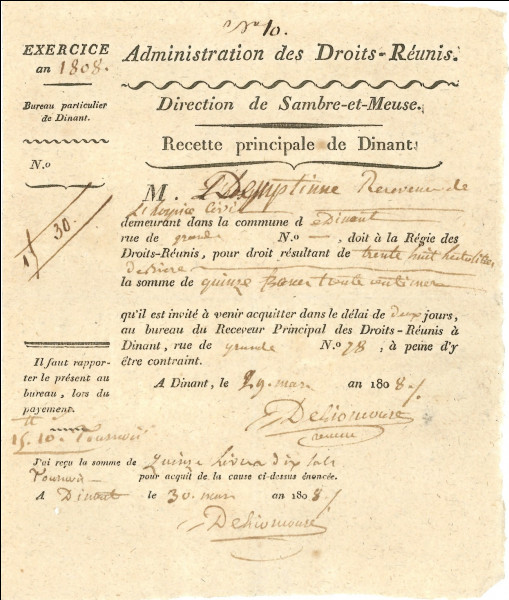 No 10.
EXERCICE
an 1808.
Administration des Droits-Réunis.
Bureau particulier
de Dinant.
Direction de Sambre-et-Meuse.
Recette principale de Dinant.
N.o
M. Receveur de
L'hospice Civil
demeurant dans la commune d Dinant
rue de grande N.o — , doit à la Régie des
Droits-Réunis, pour droit résultant de trente huit hectolitres
de Biere
la somme de quinze francs trente centimes
15 30.
qu'il est invité à venir acquitter dans le délai de deux jours,
au bureau du Receveur Principal des Droits-Réunis à
Dinant, rue de grande N.o 78 , à peine d'y
être contraint.
Il faut rapporter
le présent au
bureau, lors du
payement.
A Dinant, le 29 mars an 1808.
15. 10. Tournois
J'ai reçu la somme de quinze livres dix sols
Tournois pour acquit de la cause ci-dessus énoncée.
A Dinant le 30 mars an 1808.